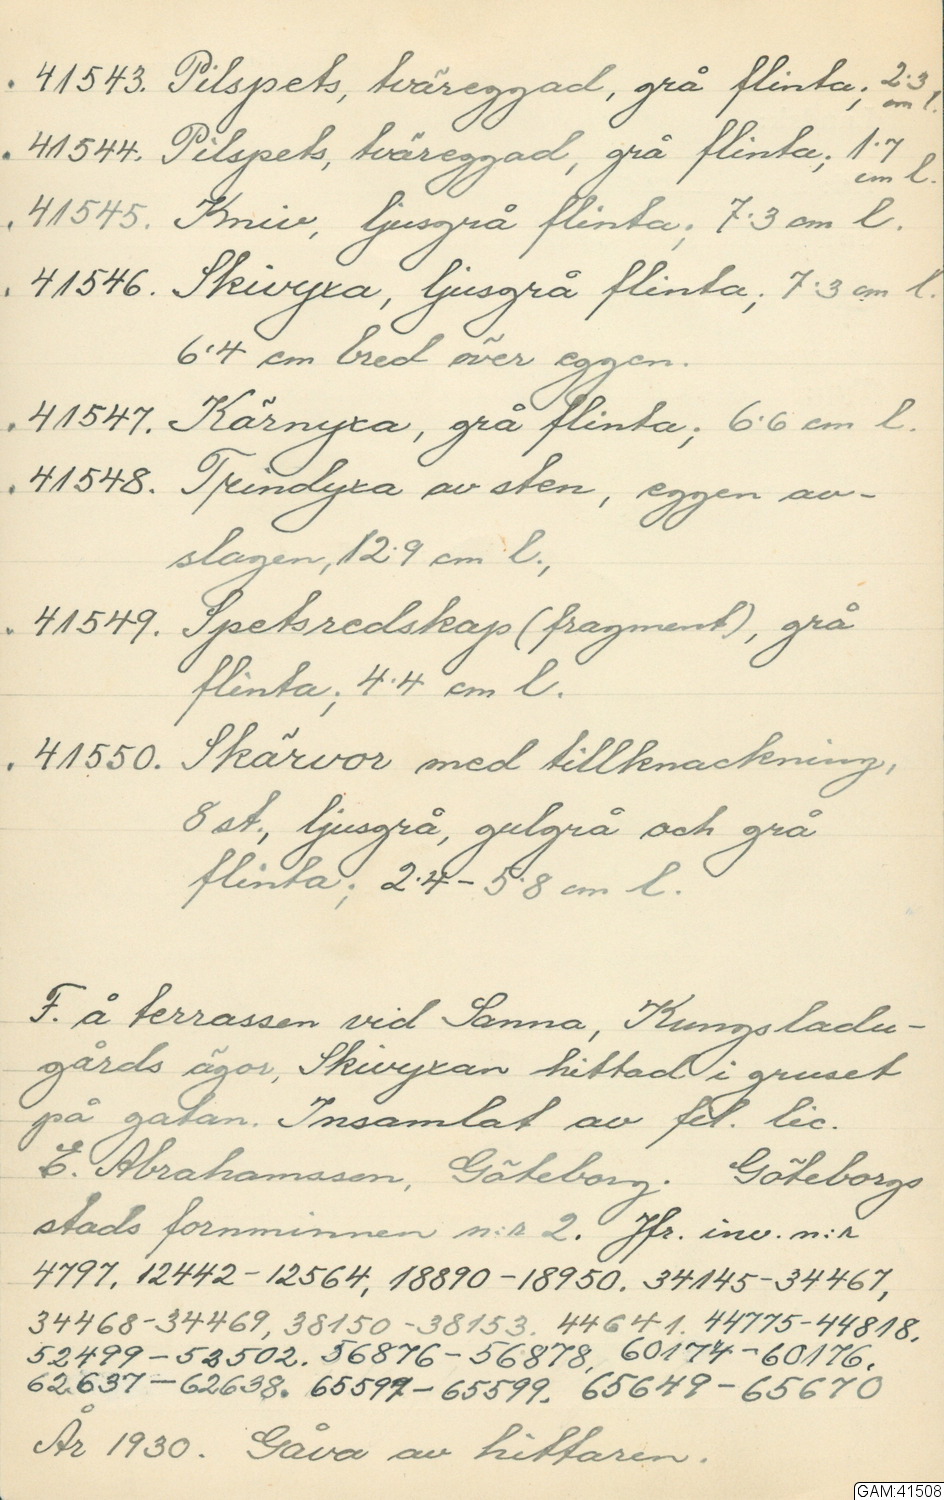 . 41543. Pilspets, tväreggad, grå flinta; 2.3 cm l.
. 41544. Pilspets, tväreggad, grå flinta; 1.7 cm l.
. 41545. Kniv, ljusgrå flinta; 7.3 cm l.
. 41546. Skivyxa, ljusgrå flinta; 7.3 cm l.
6.4 cm bred över eggen.
. 41547. Kärnyxa, grå flinta; 6.6 cm l.
. 41548. Trindyxa av sten, eggen av-
slagen, 12.9 cm l.,
. 41549. Spetsredskap (fragment), grå
flinta; 4.4 cm l.
. 41550. Skärvor med tillknackning,
8 st., ljusgrå, gulgrå och grå
flinta; 2.4 - 5.8 cm l.
F. å terrassen vid Sanna, Kungsladu-
gårds ägor, Skivyxan hittad i gruset
på gatan. Insamlat av fil. lic.
E. Abrahamsson, Göteborg. Göteborgs
stads fornminnen n:r 2. Jfr. inv. n:r
4797, 12442-12564, 18890-18950. 34145-34467,
34468-34469, 38150-38153. 44641. 44775-44818.
52499-52502. 56876-56878, 60174-60176.
62637-62638. 65597-65599. 65649-65670
År 1930. Gåva av hittaren.
GAM:41508